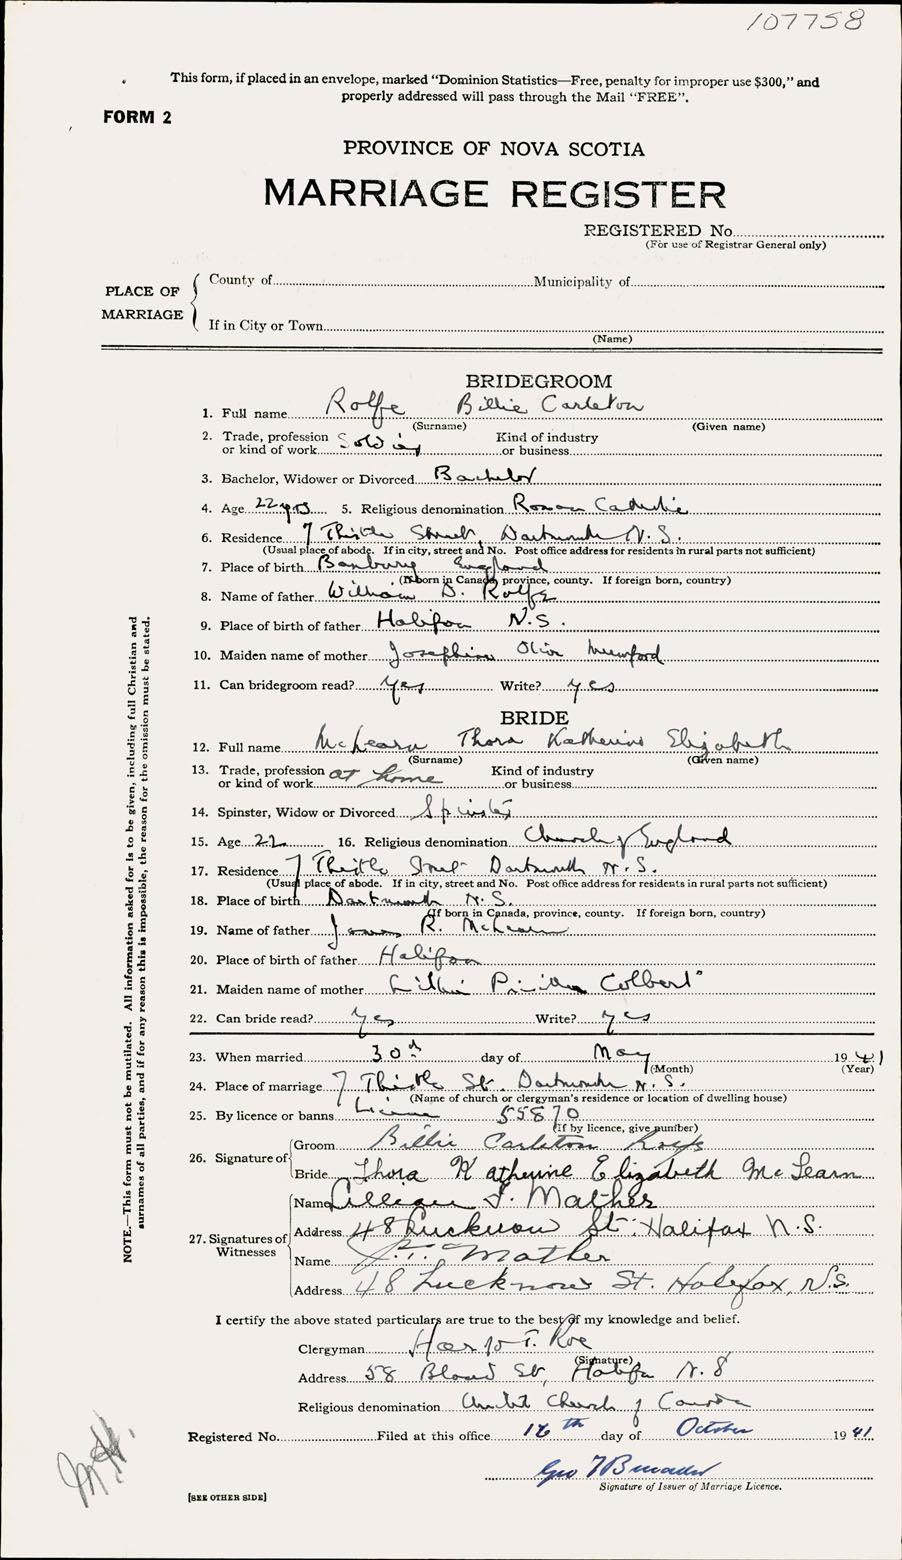 107758
This form, if placed in an envelope, marked “Dominion Statistics—Free, penalty for improper use $300,” and
properly addressed will pass through the Mail “FREE”.
FORM 2
PROVINCE OF NOVA SCOTIA
MARRIAGE REGISTER
REGISTERED No.
(For use of Registrar General only)
PLACE OF MARRIAGE
County of Municipality of
If in City or Town
(Name)
BRIDEGROOM
1. Full name Rolfe Billie Carleton
(Surname) (Given name)
2. Trade, profession or kind of work Soldier Kind of industry or business
3. Bachelor, Widower or Divorced Bachelor
4. Age 22 yrs 5. Religious denomination Roman Catholic
6. Residence 7 Thistle Street, Dartmouth N.S.
(Usual place of abode. If in city, street and No. Post office address for residents in rural parts not sufficient)
7. Place of birth Banbury England
(If born in Canada, province, county. If foreign born, country)
8. Name of father William D. Rolfe
9. Place of birth of father Halifax N.S.
10. Maiden name of mother Josephine Olive Mumford
11. Can bridegroom read? yes Write? yes
BRIDE
12. Full name McLearn Thora Katherine Elizabeth
(Surname) (Given name)
13. Trade, profession or kind of work at home Kind of industry or business
14. Spinster, Widow or Divorced Spinster
15. Age 22 16. Religious denomination Church of England
17. Residence 7 Thistle Street Dartmouth N.S.
(Usual place of abode. If in city, street and No. Post office address for residents in rural parts not sufficient)
18. Place of birth Dartmouth N.S.
(If born in Canada, province, county. If foreign born, country)
19. Name of father James R. McLearn
20. Place of birth of father Halifax
21. Maiden name of mother Colbert
22. Can bride read? yes Write? yes
23. When married 30th day of May 1941
(Month) (Year)
24. Place of marriage 7 Thistle St. Dartmouth N.S.
(Name of church or clergyman's residence or location of dwelling house)
25. By licence or banns Licence 55870
(If by licence, give number)
26. Signature of Groom Billie Carleton Rolfe
Bride Thora Katherine Elizabeth McLearn
27. Signatures of Witnesses Name Mather
Address 48 Lucknow St. Halifax N.S.
Name Mather
Address 48 Lucknow St. Halifax, N.S.
I certify the above stated particulars are true to the best of my knowledge and belief.
Clergyman T. Roe
(Signature)
Address 58 St, Halifax N.S
Religious denomination United Church of Canada
Registered No. Filed at this office 16th day of October 1941
Geo
Signature of Issuer of Marriage Licence.
[SEE OTHER SIDE]
NOTE.—This form must not be mutilated. All information asked for is to be given, including full Christian and
surnames of all parties, and if for any reason this is impossible, the reason for the omission must be stated.